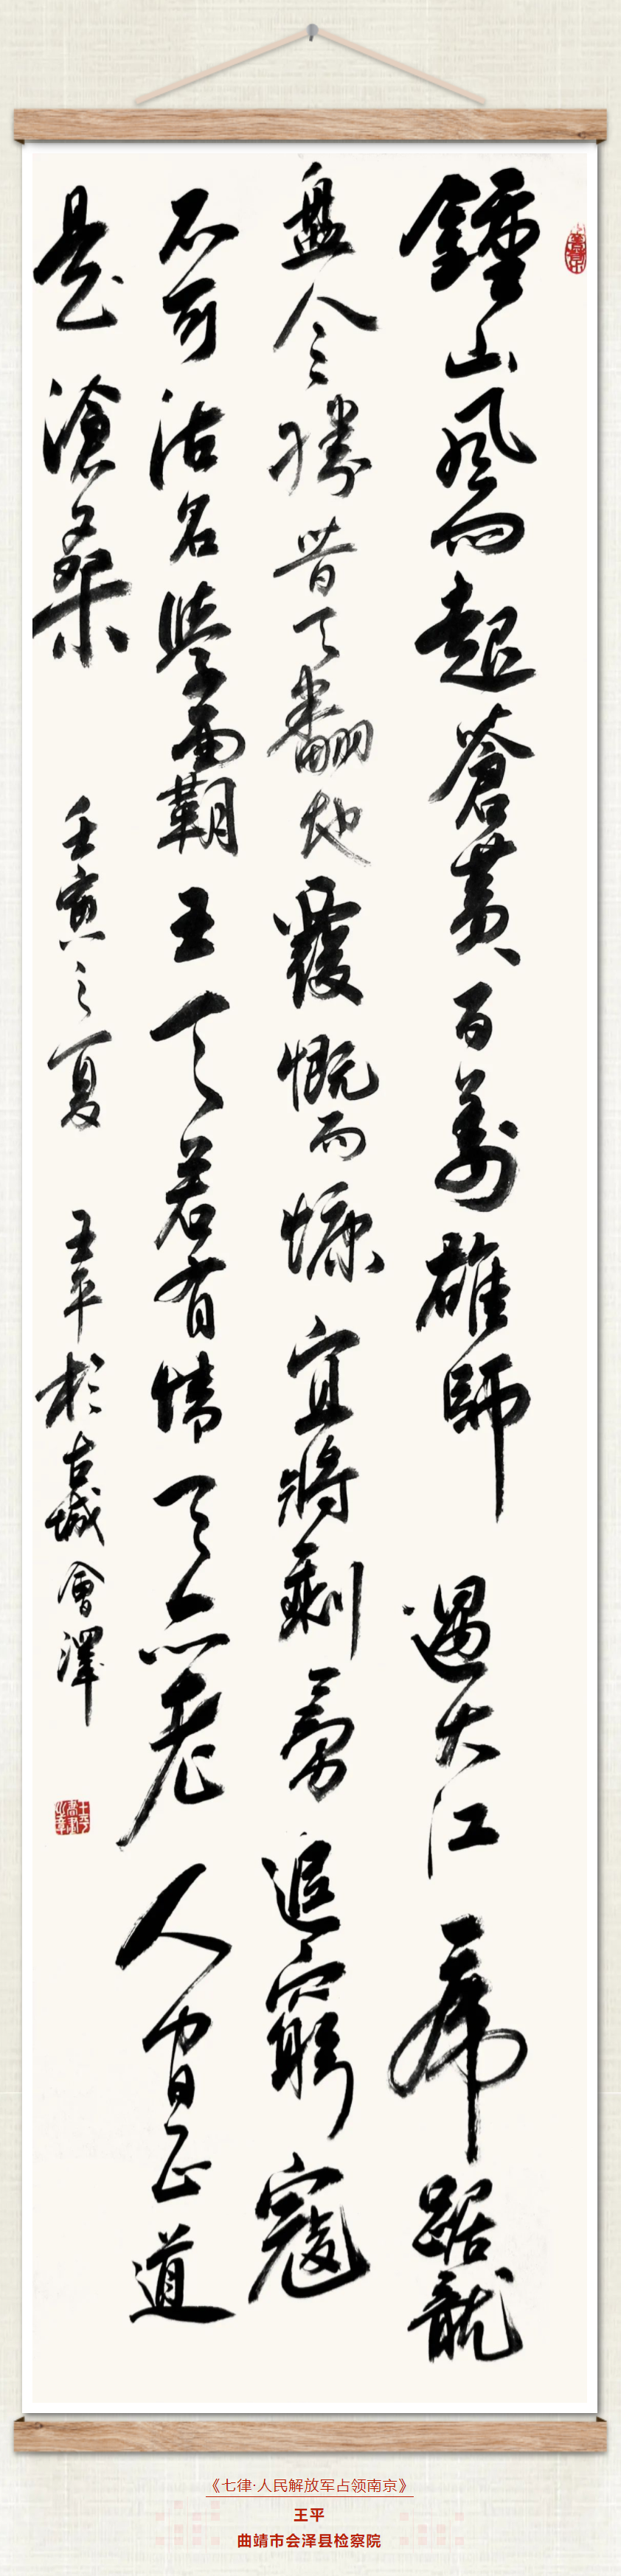 鍾山風雨起蒼黃百萬雄師過大江虎踞龍
盤今勝昔天翻地覆慨而慷宜將剩勇追窮寇
不可沽名學霸王天若有情天亦老人間正道
是滄桑 壬寅之夏 王平於古城會澤
《七律·人民解放军占领南京》
王平
曲靖市会泽县检察院